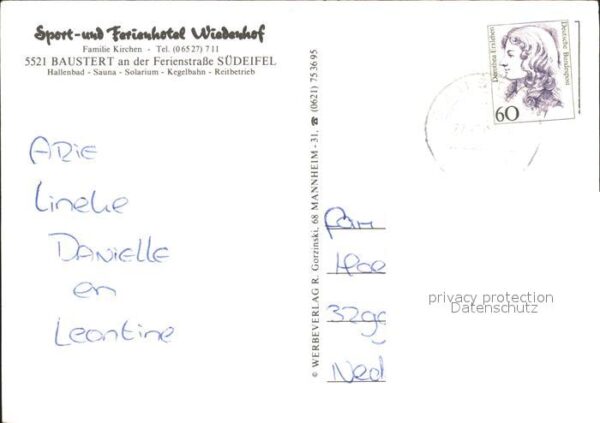 Sport- und Ferienhotel Wiedenhof
Familie Kirchen - Tel. (06527) 711
5521 BAUSTERT an der Ferienstraße SÜDEIFEL
Hallenbad - Sauna - Solarium - Kegelbahn - Reitbetrieb
ARIE
Lineke
DANIELLE
en
Leontine
© WERBEVERLAG R. Gorzinski, 68 MANNHEIM - 31, ☎ (0621) 753695
Dorothea Erxleben
Deutsche Bundespost
60
Fam
Hoe
32
Ned
privacy protection
Datenschutz